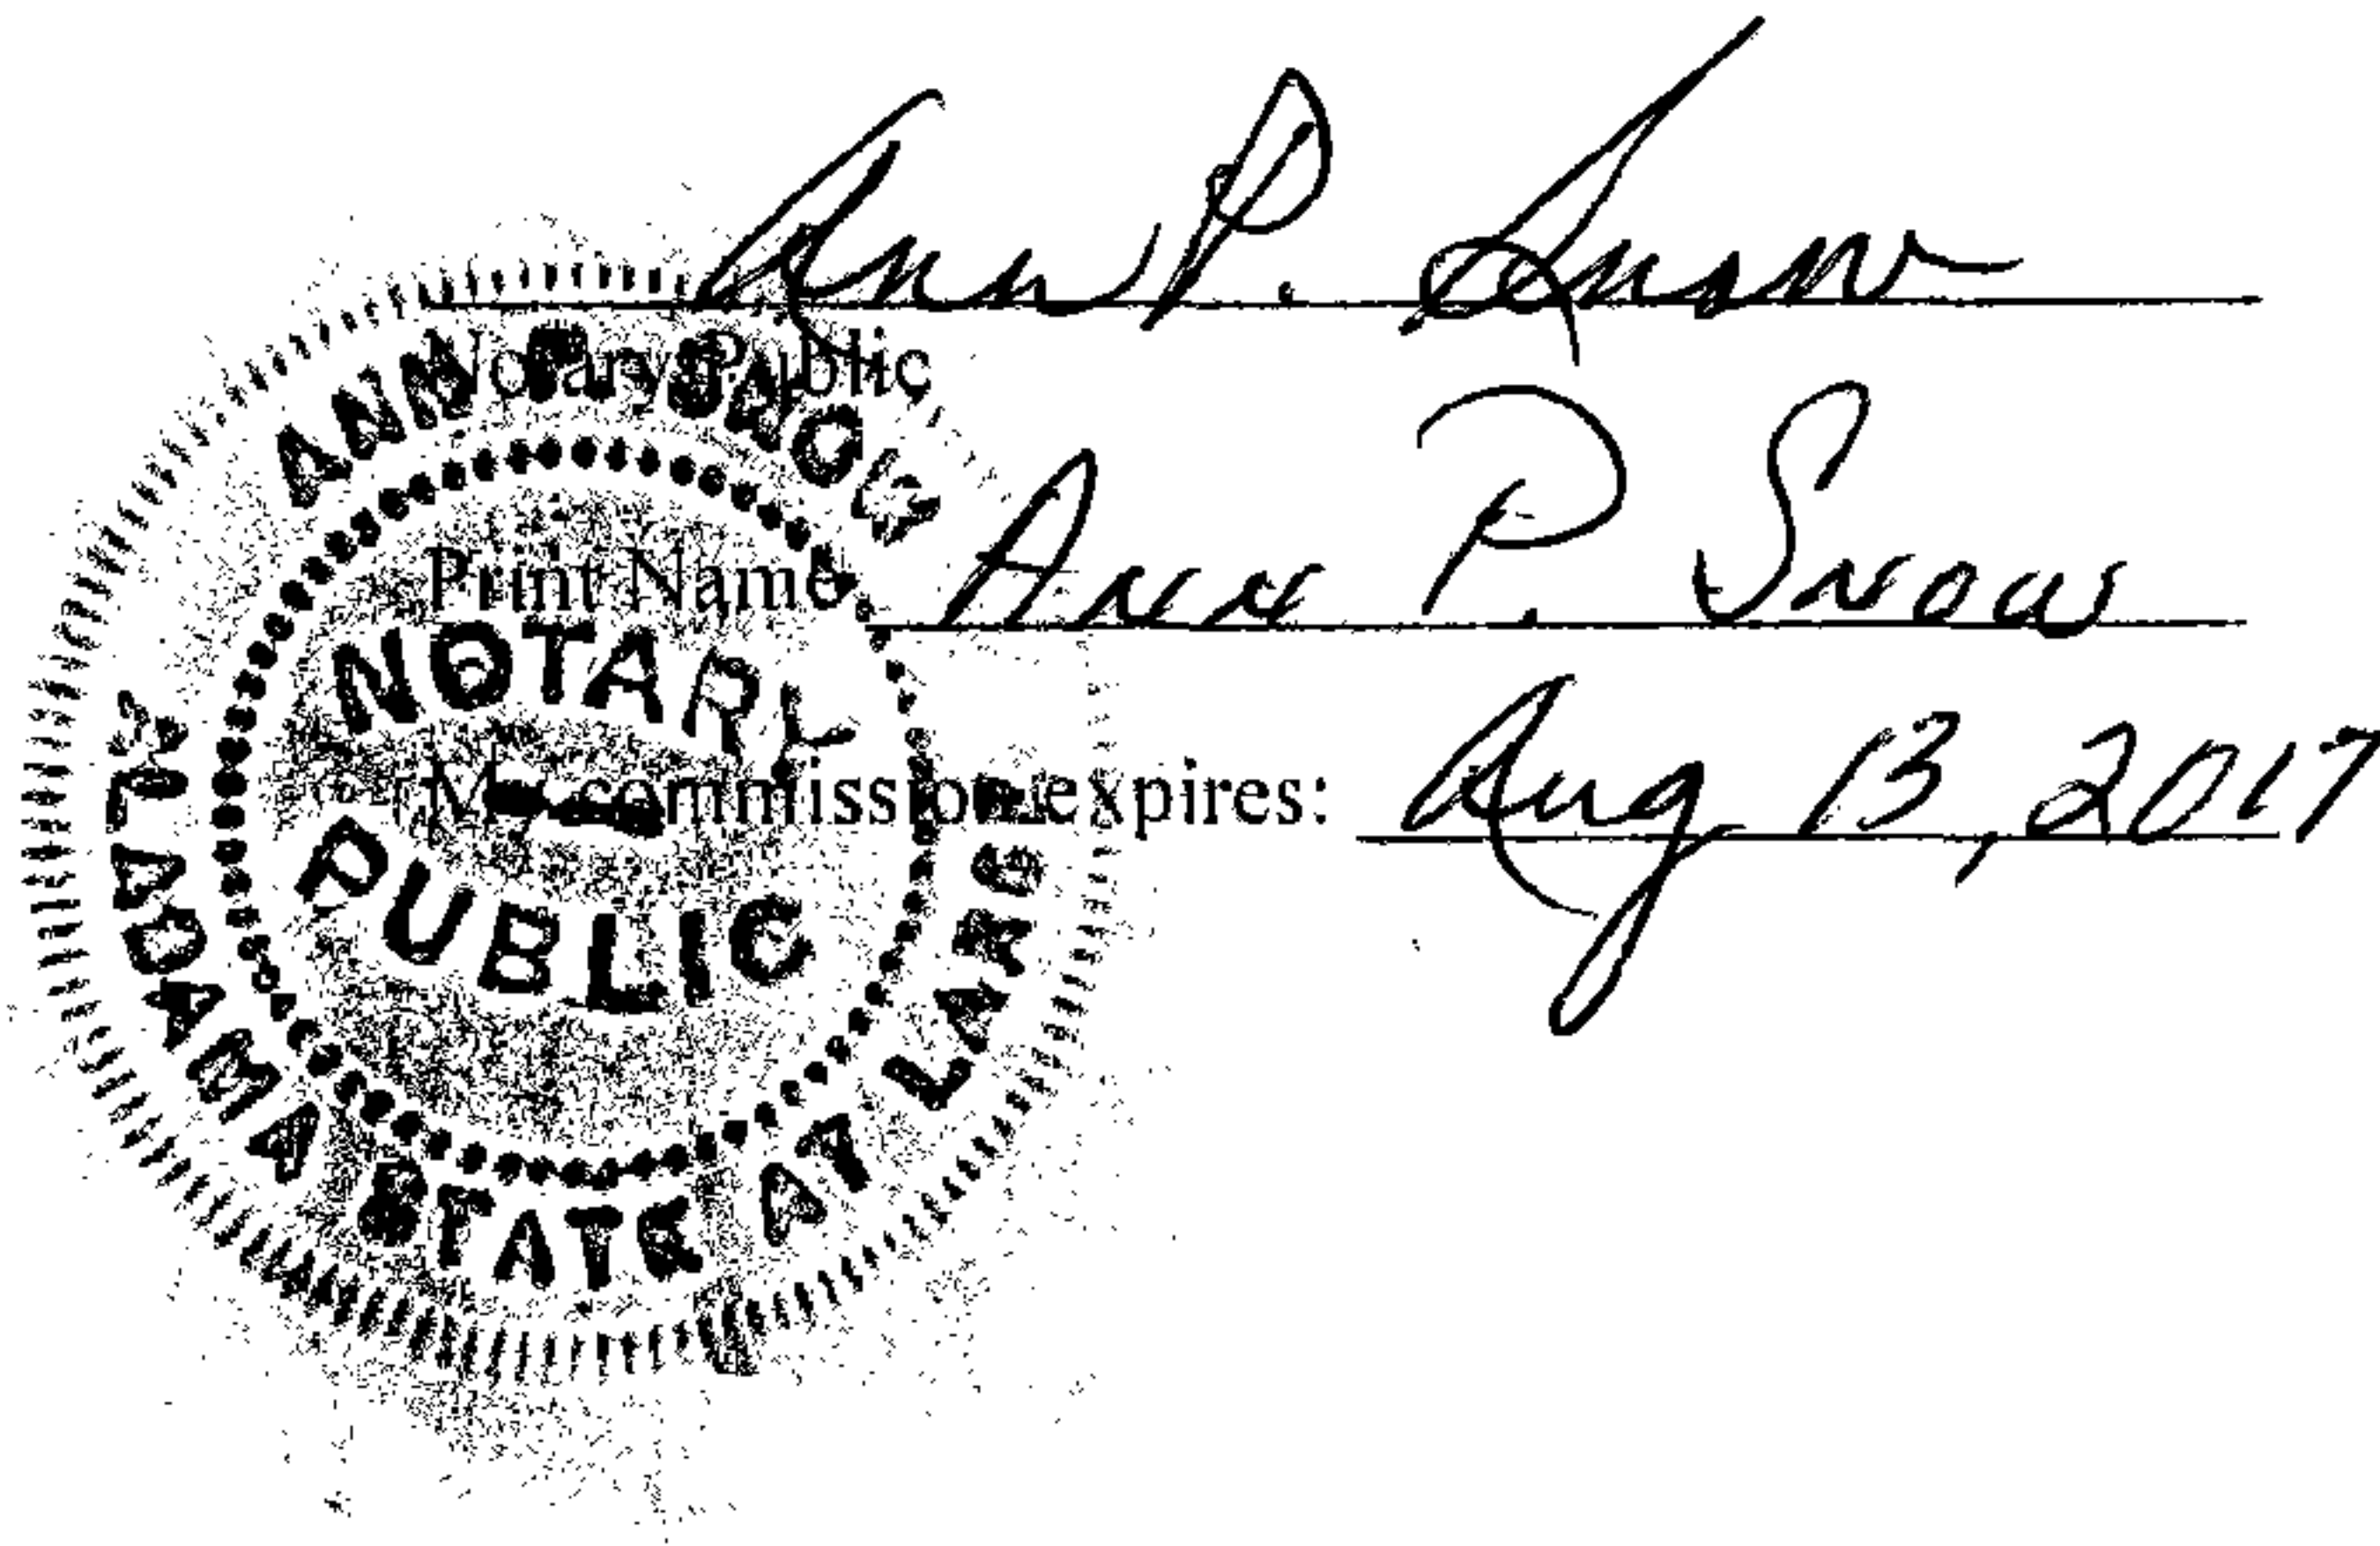 Ann P. Snow
Notary Public
Print Name Ann P. Snow
My commission expires: Aug 13, 2017
ANN P. SNOW
NOTARY
PUBLIC
ALABAMA STATE AT LARGE